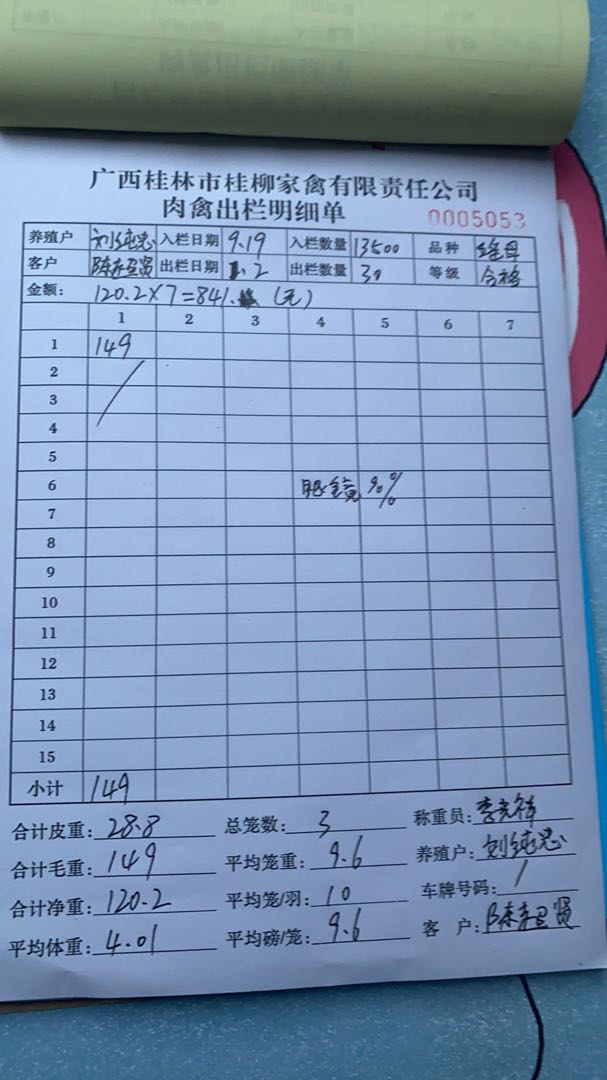 广西桂林市桂柳家禽有限责任公司
肉禽出栏明细单 0005053
养殖户 刘纯忠 入栏日期 9.19 入栏数量 13500 品种
客户 出栏日期 1.2 出栏数量 30 等级 合格
金额: 120.2×7=841. (元)
1 2 3 4 5 6 7
1 149
2
3
4
5
6 眼镜 90%
7
8
9
10
11
12
13
14
15
小计 149
合计皮重: 28.8 总笼数: 3 称重员:
合计毛重: 149 平均笼重: 9.6 养殖户: 刘纯忠
合计净重: 120.2 平均笼/羽: 10 车牌号码: /
平均体重: 4.01 平均磅/笼: 9.6 客 户: